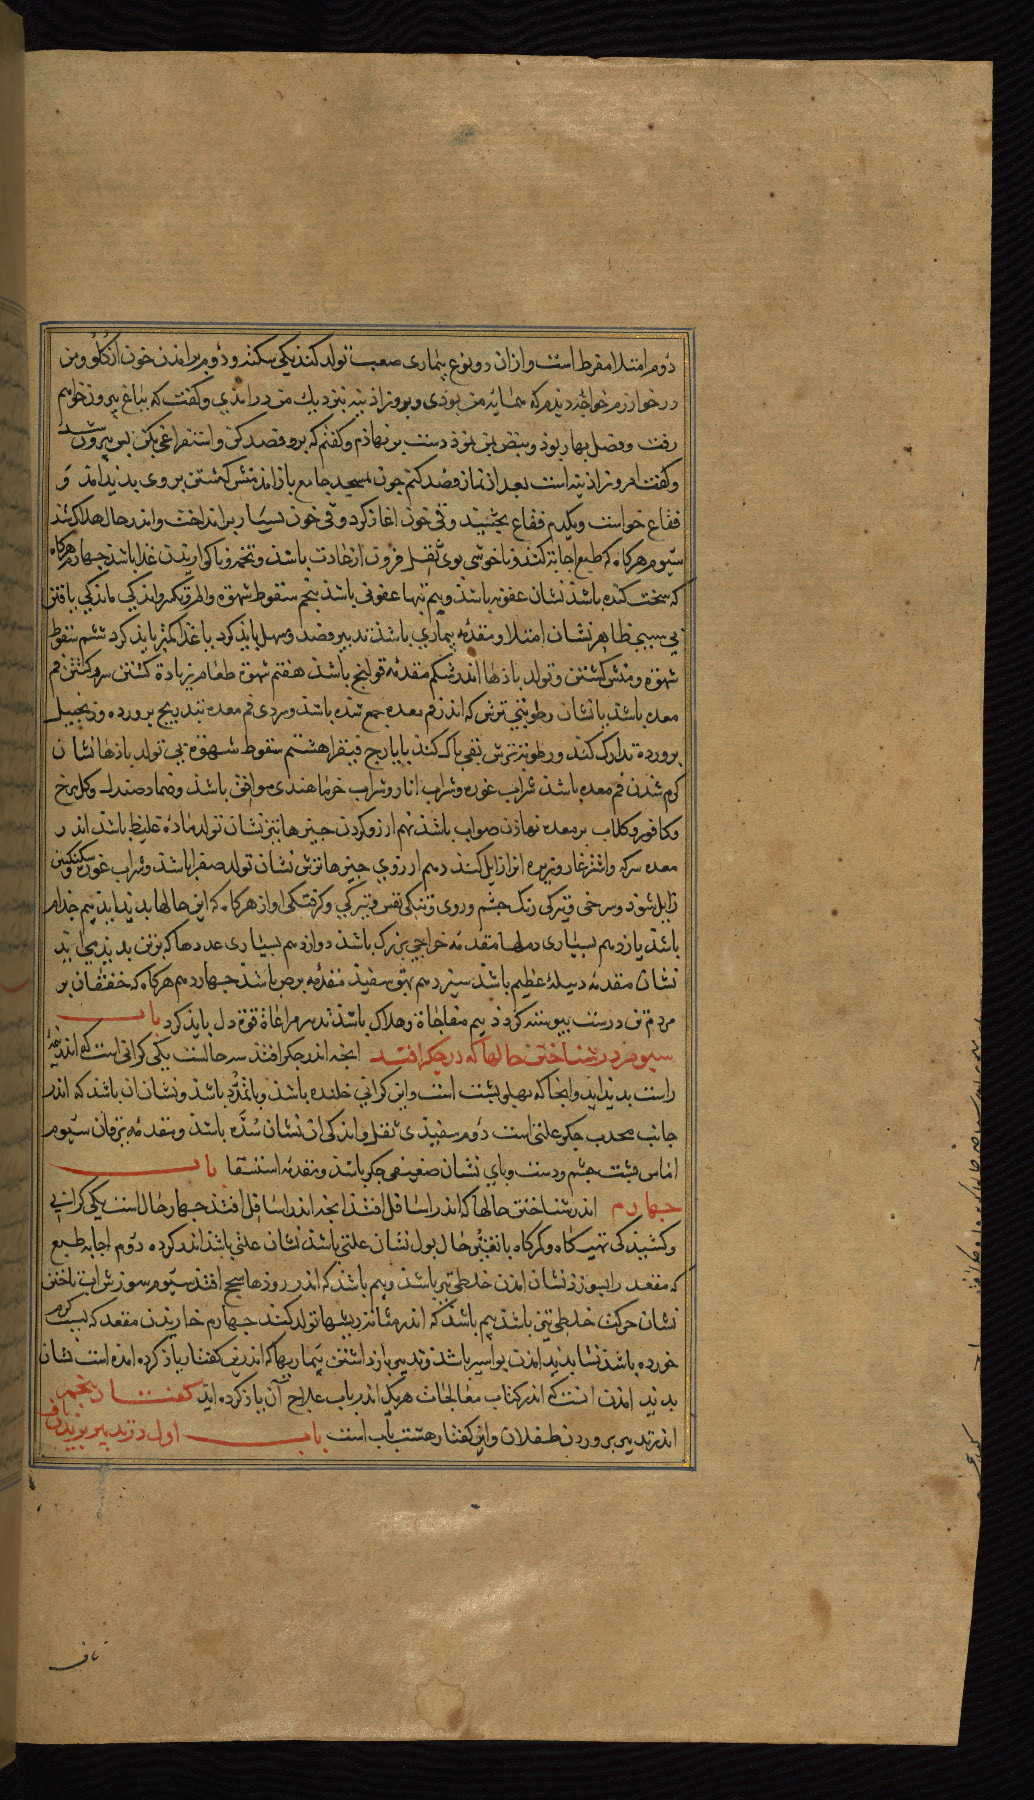 دوم امتلا مفرط است و ازان دو نوع بیماری صعب تولد کند یکی سکته و دوم برامدن خون از کلو و من
در خوارزم خواجه دیدم که همسایه من بودی و بروز اذینه بنزدیک من درامدی و کفت که بباغ بیرون خواهم
رفت و فصل بهار بود و نبض او دست برنهاذم و کفتم که برو فصد کن و استفراغی بکن بس بیرون شد
و کفت امروز اذینه است بعد از نماز فصد کنم چون بمسجد جامع باز امد منش کشتن بر وی بدید امد و
فقاع خواست و یکدم فقاع بجشید و قی خون اغاز کرد و قی خون بسیار برانداخت و اندر حال هلاک شد
سیوم هرکاه که طبع اجابة کند و ناخوشی بوی ثقل فزون از عادت باشد و تخمه و ناکواریدن غذا باشد جهارم هرکاه
که سخت کنده باشد نشان عفونه باشد و بیم تبها عفونی باشد بنجم سقوط شهوة و اندکی ماندکی یافتن
بی سببی ظاهر نشان امتلا و مقدمه بیماری باشد تدبیر فصد و مسهل باید کرد یا غذا کمتر باید کرد ششم سقوط
شهوة و منش کشتن و تولد بادها اندر شکم مقدمه قولنج باشد هفتم شهوة طعام زیادة کشتن سرد کشتن فم
معده باشد یا نشان رطوبتی ترش که اندر فم معده جمع شده باشد و سردی فم معده بتدریج برورده و زنجبیل
برورده تدارک کنند و رطوبة ترش بقی باک کنند یا بایارج فیقرا هشتم سقوط شهوة بی تولد بادها نشان
کرم شدن فم معده باشد شراب غوره و شراب انار و شراب خرما هندی موافق باشد و ضماد صندل و کل سرخ
و کافور و کلاب بر معده نهاذن صواب باشد نهم ارزو کردن جیزها تیز نشان تولد ماده غلیظ باشد اندر
معده سرکه و اشترغار و زیره انرا زایل کند دهم ارزوی جیزها ترش نشان تولد صفرا باشد و شراب غوره و سکنکبین
زایل شود و سرخی و تیرکی رنک جشم و روی و تنکی نفس و تیرکی و کرفتکی اواز هرکاه که این حالها بدید اید بیم جذام
باشد یازدهم بسیاری دملها مقدمه خراجی بزرک باشد دوازدهم بسیاری عددها که بر تن بدید همی اید
نشان مقدمه دبیله عظیم باشد سیزدهم بهق سفید مقدمه برص باشد جهاردهم هرکاه که خفقان بر
مردم تن درست بیوسته کردد بیم مفاجاة و هلاک باشد تدبیر مراعاة قوة دل باید کرد باب
سیوم در شناختن حالها که در جکر افتد انجه اندر جکر افتد سه حالست یکی کرانی است که اندر نیمه
راست بدید اید و انجا که بهلو بشت است و این کرانی خلنده باشد و با تمدد باشد و نشان ان باشد که اندر
جانب محدب جکر علتی است دوم سفیدی ثقل و اندکی ان نشان سده باشد و مقدمه یرقان سیوم
اماس بشت جشم و دست و بای نشان ضعیفی جکر باشد و مقدمه استسقا باب
جهارم اندر شناختن حالها که اندر اسافل افتد انجه اندر اسافل افتد جهار حال است یکی کرانی
و کشیدکی تهیکاه و کمرکاه با تغیر حال بول نشان علتی باشد نشان علتی باشد اندر کرده دوم اجابه طبع
که مقعد را بسوزد نشان امدن خلطی تیز باشد و بیم باشد که اندر روذها سحج افتد سیوم سوزش اب تاختن
نشان حرکت خلطی تیز باشد بیم باشد که اندر مثانه ریشها تولد کند جهارم خاریدن مقعد که نیست کرم
خورده باشد نشان بدید امدن بواسیر باشد و تدبیر بازداشتن بیماریها که اندر این کفتار یاذ کرده امده است نشان
بدید امدن انست که اندر کتاب معالجات هریک اندر باب علاج آن یاذ کرده اید کفتار بنجم
اندر تدبیر بروردن طفلان و این کفتار هشت باب است باب اول در تدبیر بریدن ناف
ناف